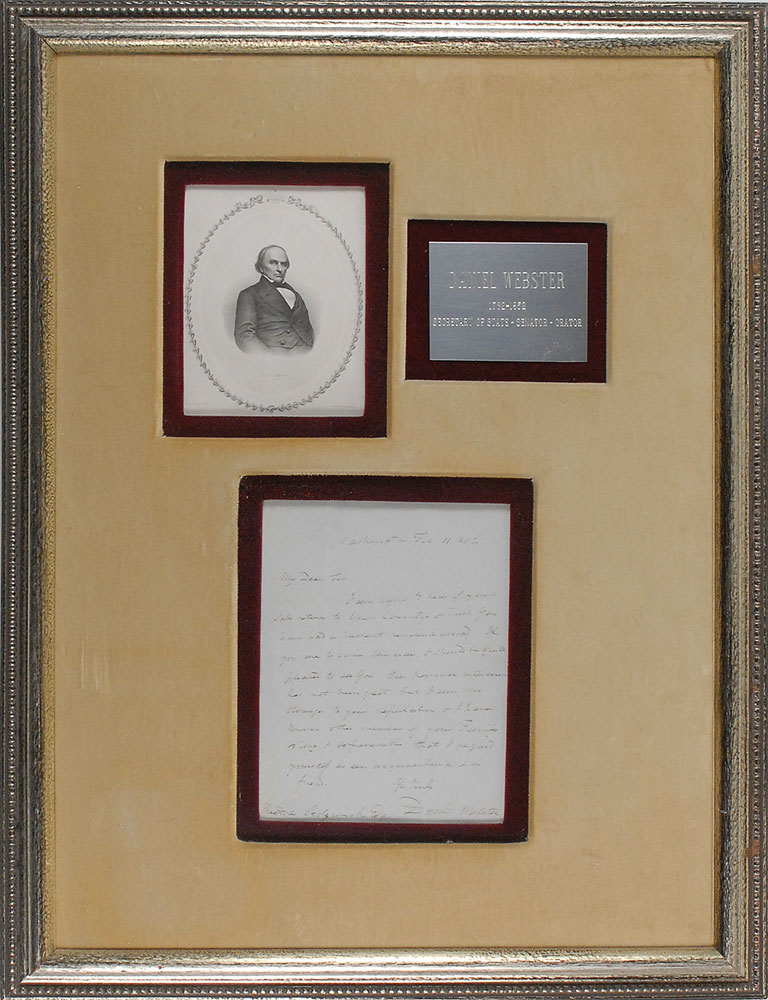 DANIEL WEBSTER
1782-1852
SECRETARY OF STATE - SENATOR - ORATOR
Washington Feb 11. 1852
My Dear Sir
I am happy to hear of your
safe return to your Country & trust you
have had a pleasant residence abroad. If
you are to come this way, I should be quite
pleased to see you. Our personal intercourse
has not been great, but I am no
stranger to your reputation & I have
known other members of your Family
so long & so favorably that I regard
yourself as an acquaintance & a
friend.
Yrs truly
Danl Webster